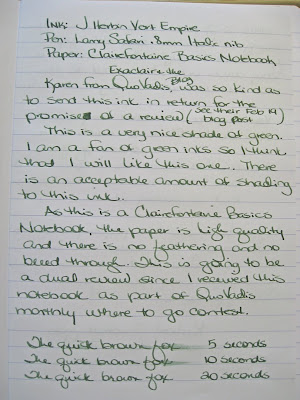 Ink: J Herbin Vert Empire
Pen: Lamy Safari .8mm Italic nib
Paper: Clairefontaine Basics Notebook
Exaclaire the
Karen from QuoVadis, Blog was so kind as
to send this ink in return for the
promise of a review (see their Feb 19 blog post)
This is a very nice shade of green.
I am a fan of green inks so I think
that I will like this one. There
is an acceptable amount of shading
to this ink.
As this is a Clairefontaine Basics
Notebook, the paper is high quality
and there is no feathering and no
bleed through. This is going to be
a dual review since I received this
notebook as part of QuoVadis
monthly where to go contest.
The quick brown fox 5 seconds
The quick brown fox 10 seconds
The quick brown fox 20 seconds